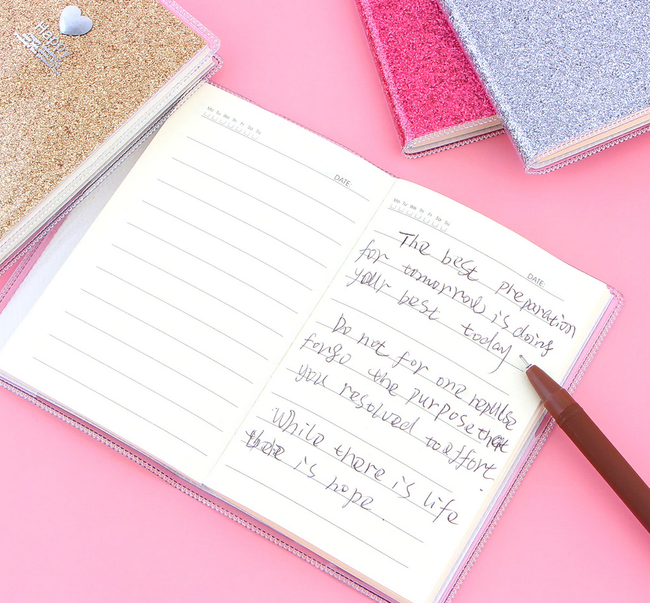 Happy
Mo Tu We Th Fr Sa Su
DATE:
Mo Tu We Th Fr Sa Su
DATE:
The best preparation
for tomorrow is doing
your best today
Do not for one repulse
forgo the purpose that
you resolved to effort.
While there is life
there is hope.